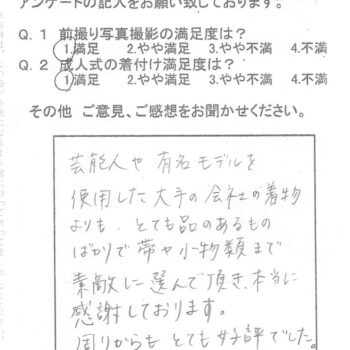 アンケートの記入をお願い致しております。
Q.1 前撮り写真撮影の満足度は？
1.満足 2.やや満足 3.やや不満 4.不満
Q.2 成人式の着付け満足度は？
1.満足 2.やや満足 3.やや不満 4.不満
その他 ご意見、ご感想をお聞かせください。
芸能人や有名モデルを
使用した大手の会社の着物
よりも、とても品のあるもの
ばかりで帯や小物類まで
素敵に選んで頂き、本当に
感謝しております。
周りからもとても好評でした。